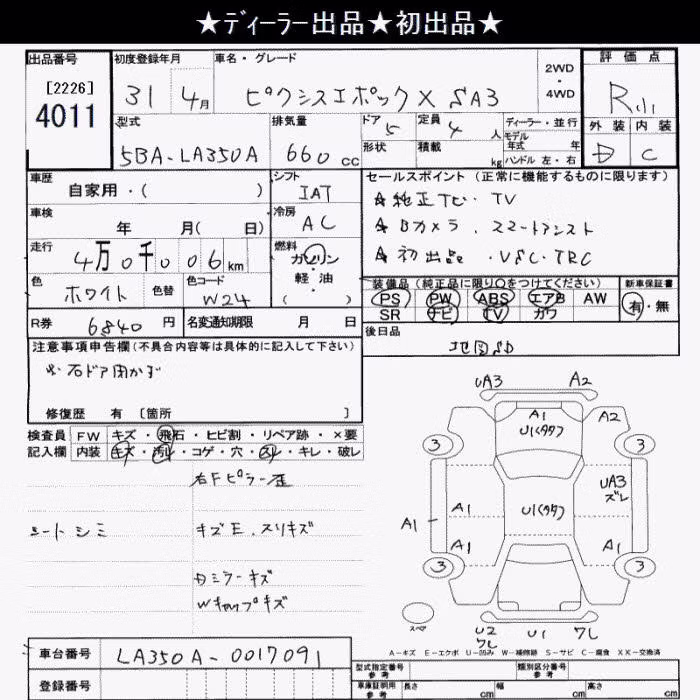 ★ディーラー出品★初出品★
出品番号 初度登録年月 車名・グレード 2WD・4WD 評価点
[2226]
4011
31 4月 ピクシスエポック X SA3 R小
型式 排気量 ドア 定員 ディーラー・並行 外装 内装
5BA-LA350A 660 CC 5 4人 モデル年式 年 D C
形状 積載 kg ハンドル 左・右
車歴 自家用・( ) シフト IAT
セールスポイント (正常に機能するものに限ります)
★純正ナビ・TV
車検 年 月( 日) 冷房 AC
★Bカメラ スマートアシスト
★初出品・VSC・TRC
走行 4万0千006km 燃料 ガソリン・軽油・( )
色 ホワイト 色替 色コード W24
装備品 (純正品に限り○をつけてください) 新車保証書
PS PW ABS エアB AW 有・無
SR ナビ TV カワ
R券 6840円 名変通知期限 月 日
後日品
地図SD
注意事項申告欄(不具合内容等は具体的に記入して下さい)
修復歴 有 〔箇所 〕
検査員記入欄
FW キズ・飛石・ヒビ割・リペア跡・×要
内装 キズ・汚れ・コゲ・穴・スレ・キレ・破レ
右Fピラー歪
シートシミ キズE.スリキズ
Wキャップキズ
UA3 A2
A1 A2
U1(タタナ)
3 3
UA3
ズレ
A1 U1(タタナ)
A1
A1 A1
3 3
スペア
U2 ワレ U1 ワレ
A-キズ E-エクボ U-凹み W-補修跡 S-サビ C-腐食 XX-交換済
車台番号 LA350A-0017091
型式指定番号 参考 類別区分番号 参考
登録番号
車庫証明用 参考 長さ cm 幅 cm 高さ cm